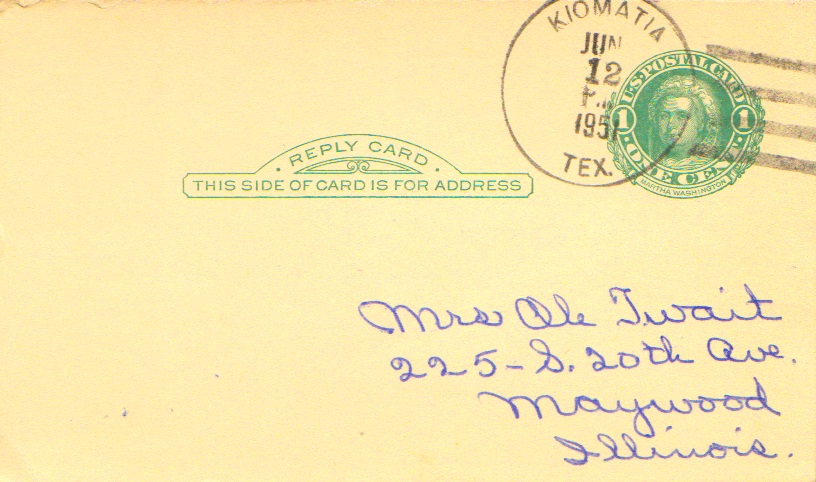 KIOMATIA
JUN
12
1951
TEX.
U.S. POSTAL CARD
1 1
ONE CENT
MARTHA WASHINGTON
· REPLY CARD ·
THIS SIDE OF CARD IS FOR ADDRESS
Mrs Ole Twait
225-S. 20th Ave.
Maywood
Illinois.